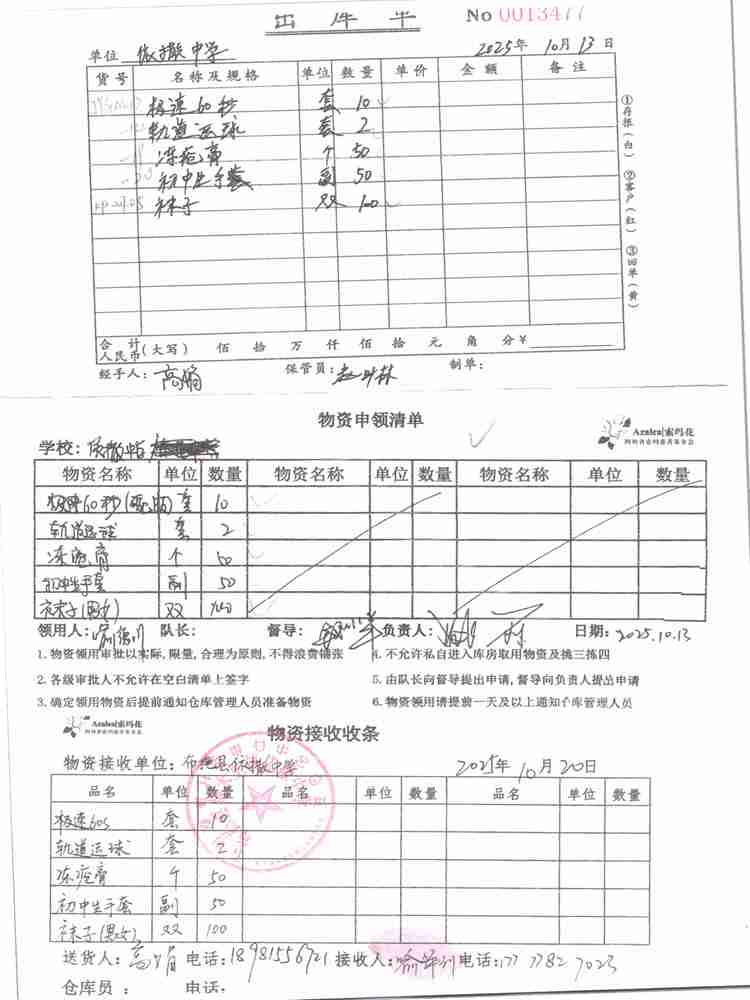 出库单 No 0013477
单位 依撒中学 2025年 10月 13日
货号 名称及规格 单位 数量 单价 金额 备注
极速60秒 套 10
轨道运球 套 2
冻疮膏 个 50
初中生手套 副 50
袜子 双 100
①存根(白) ②客户(红) ③回单(黄)
合计人民币(大写) 佰 拾 万 仟 佰 拾 元 角 分¥
经手人: 保管员: 制单:
物资申领清单
Azalea|索玛花
学校: 依撒中学
物资名称 单位 数量 物资名称 单位 数量 物资名称 单位 数量
极速60秒 套 10
轨道运球 套 2
冻疮膏 个 50
初中生手套 副 50
袜子(男女) 双 100
领用人: 队长: 督导: 负责人: 日期: 2025.10.13
1. 物资领用审批以实际, 限量, 合理为原则, 不得浪费铺张 4. 不允许私自进入库房取用物资及挑三拣四
2. 各级审批人不允许在空白清单上签字 5. 由队长向督导提出申请, 督导向负责人提出申请
3. 确定领用物资后提前通知仓库管理人员准备物资 6. 物资领用请提前一天及以上通知仓库管理人员
Azalea|索玛花
物资接收收条
物资接收单位: 布拖县依撒中学 2025年 10月 20日
品名 单位 数量 品名 单位 数量 品名 单位 数量
极速60s 套 10
轨道运球 套 2
冻疮膏 个 50
初中生手套 副 50
袜子(男女) 双 100
送货人: 电话: 18981556721 接收人: 电话: 177 7782 7023
仓库员: 电话: